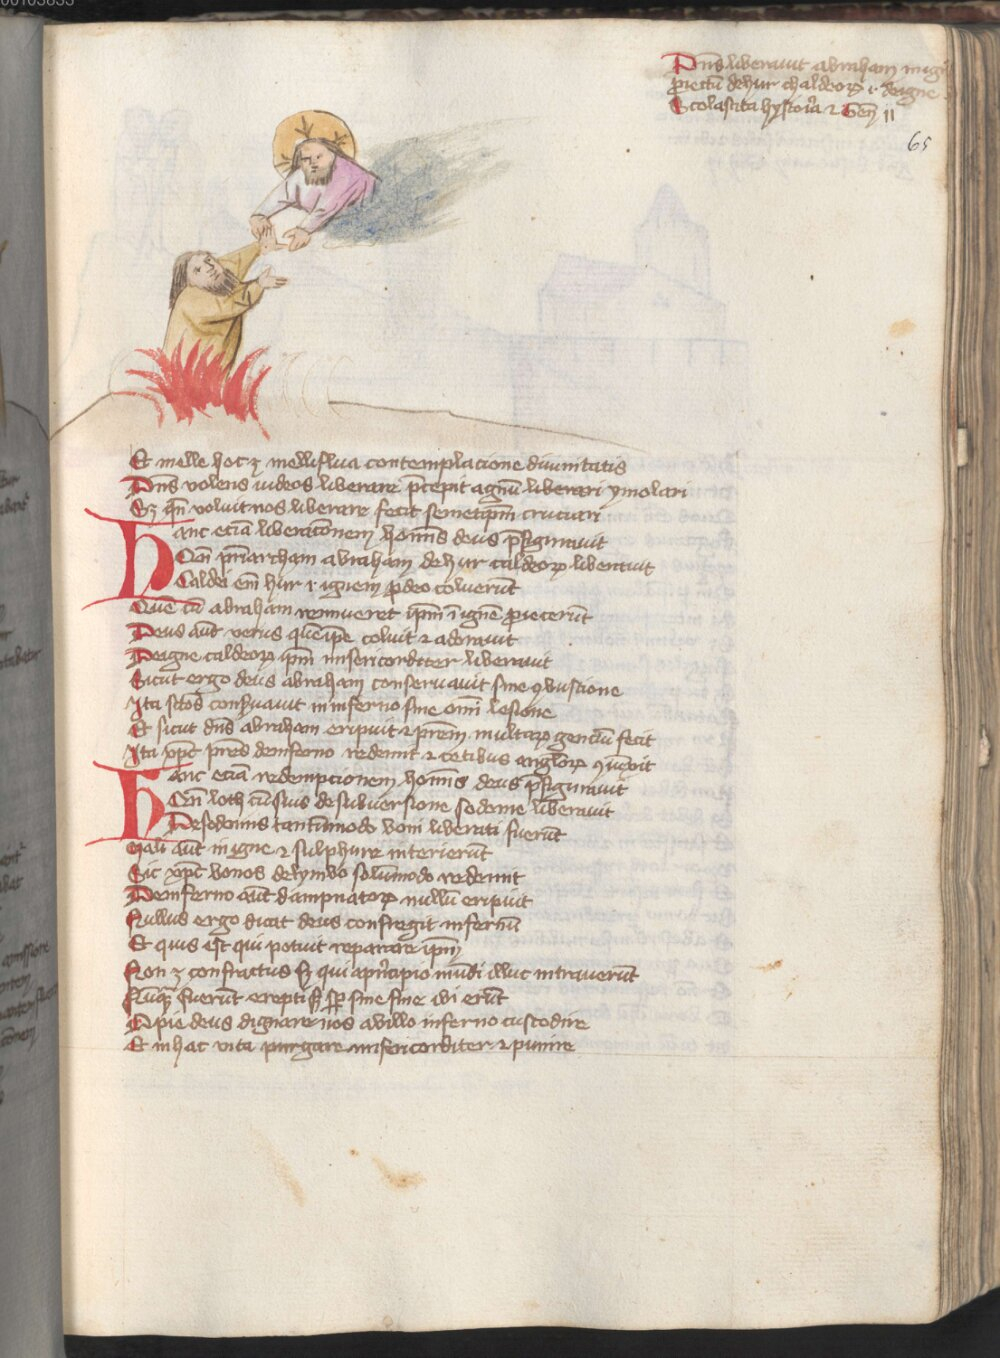 Dns liberauit abraham in igne
proiectu de hur chaldeoꝝ .i. de igne
Scolastica hystoria ⁊ Geñ 11
65
Et melle hoc ē melliflua contemplacione diuinitatis
Dns volens iudeos liberare p̄cepit agnū liberari ymolari
Sꝫ qn̄ voluit nos liberare fecit semetip̄m cruciari
Hanc eciā liberacōnem hoīnis deus p̄figurauit
Cum pr̄iarcham abraham de hur caldeoꝝ liberauit
Caldei em̄ hur .i. ignem ꝓ deo coluerūt
Que cū abraham rennueret ip̄m ī ignē proiecerūt
Deus aūt verus quē ip̄e coluit ⁊ adorauit
De igne caldeoꝝ ip̄m misericorditer liberauit
Sicut ergo deus abraham conseruauit sine ꝯbustione
Ita sc̄os conẜuauit in inferno sine om̄i lesione
Et sicut dn̄s abraham eripuit ⁊ p̄rem multaꝝ genciū fecit
Ita xp̄c pr̄es de inferno redemit ⁊ cetibus angl̄oꝝ ꝯiūxit
Hanc eciā redempcionem hoīnis deus p̄figurauit
Cum loth cū suis de subuersione sodome liberauit
De sodomis tantūmodo boni liberati fuerūt
Mali aūt in igne ⁊ sulphure interierūt
Sic xp̄c bonos de lymbo solūmodo redemit
De inferno aūt dampnatoꝝ nullū eripuit
Nullus ergo dicat deus confregit infernū
Et quis est qui potuit reparare ip̄m
Non ē confractus sꝫ qui a p̄ncipio mūdi illuc intrauerūt
Nūqꝫ fuerūt erepti sꝫ sp̄ sine fine ibi erūt
O pie deus dignare nos ab illo inferno custodire
Et in hac vita purgare misericorditer ⁊ punire